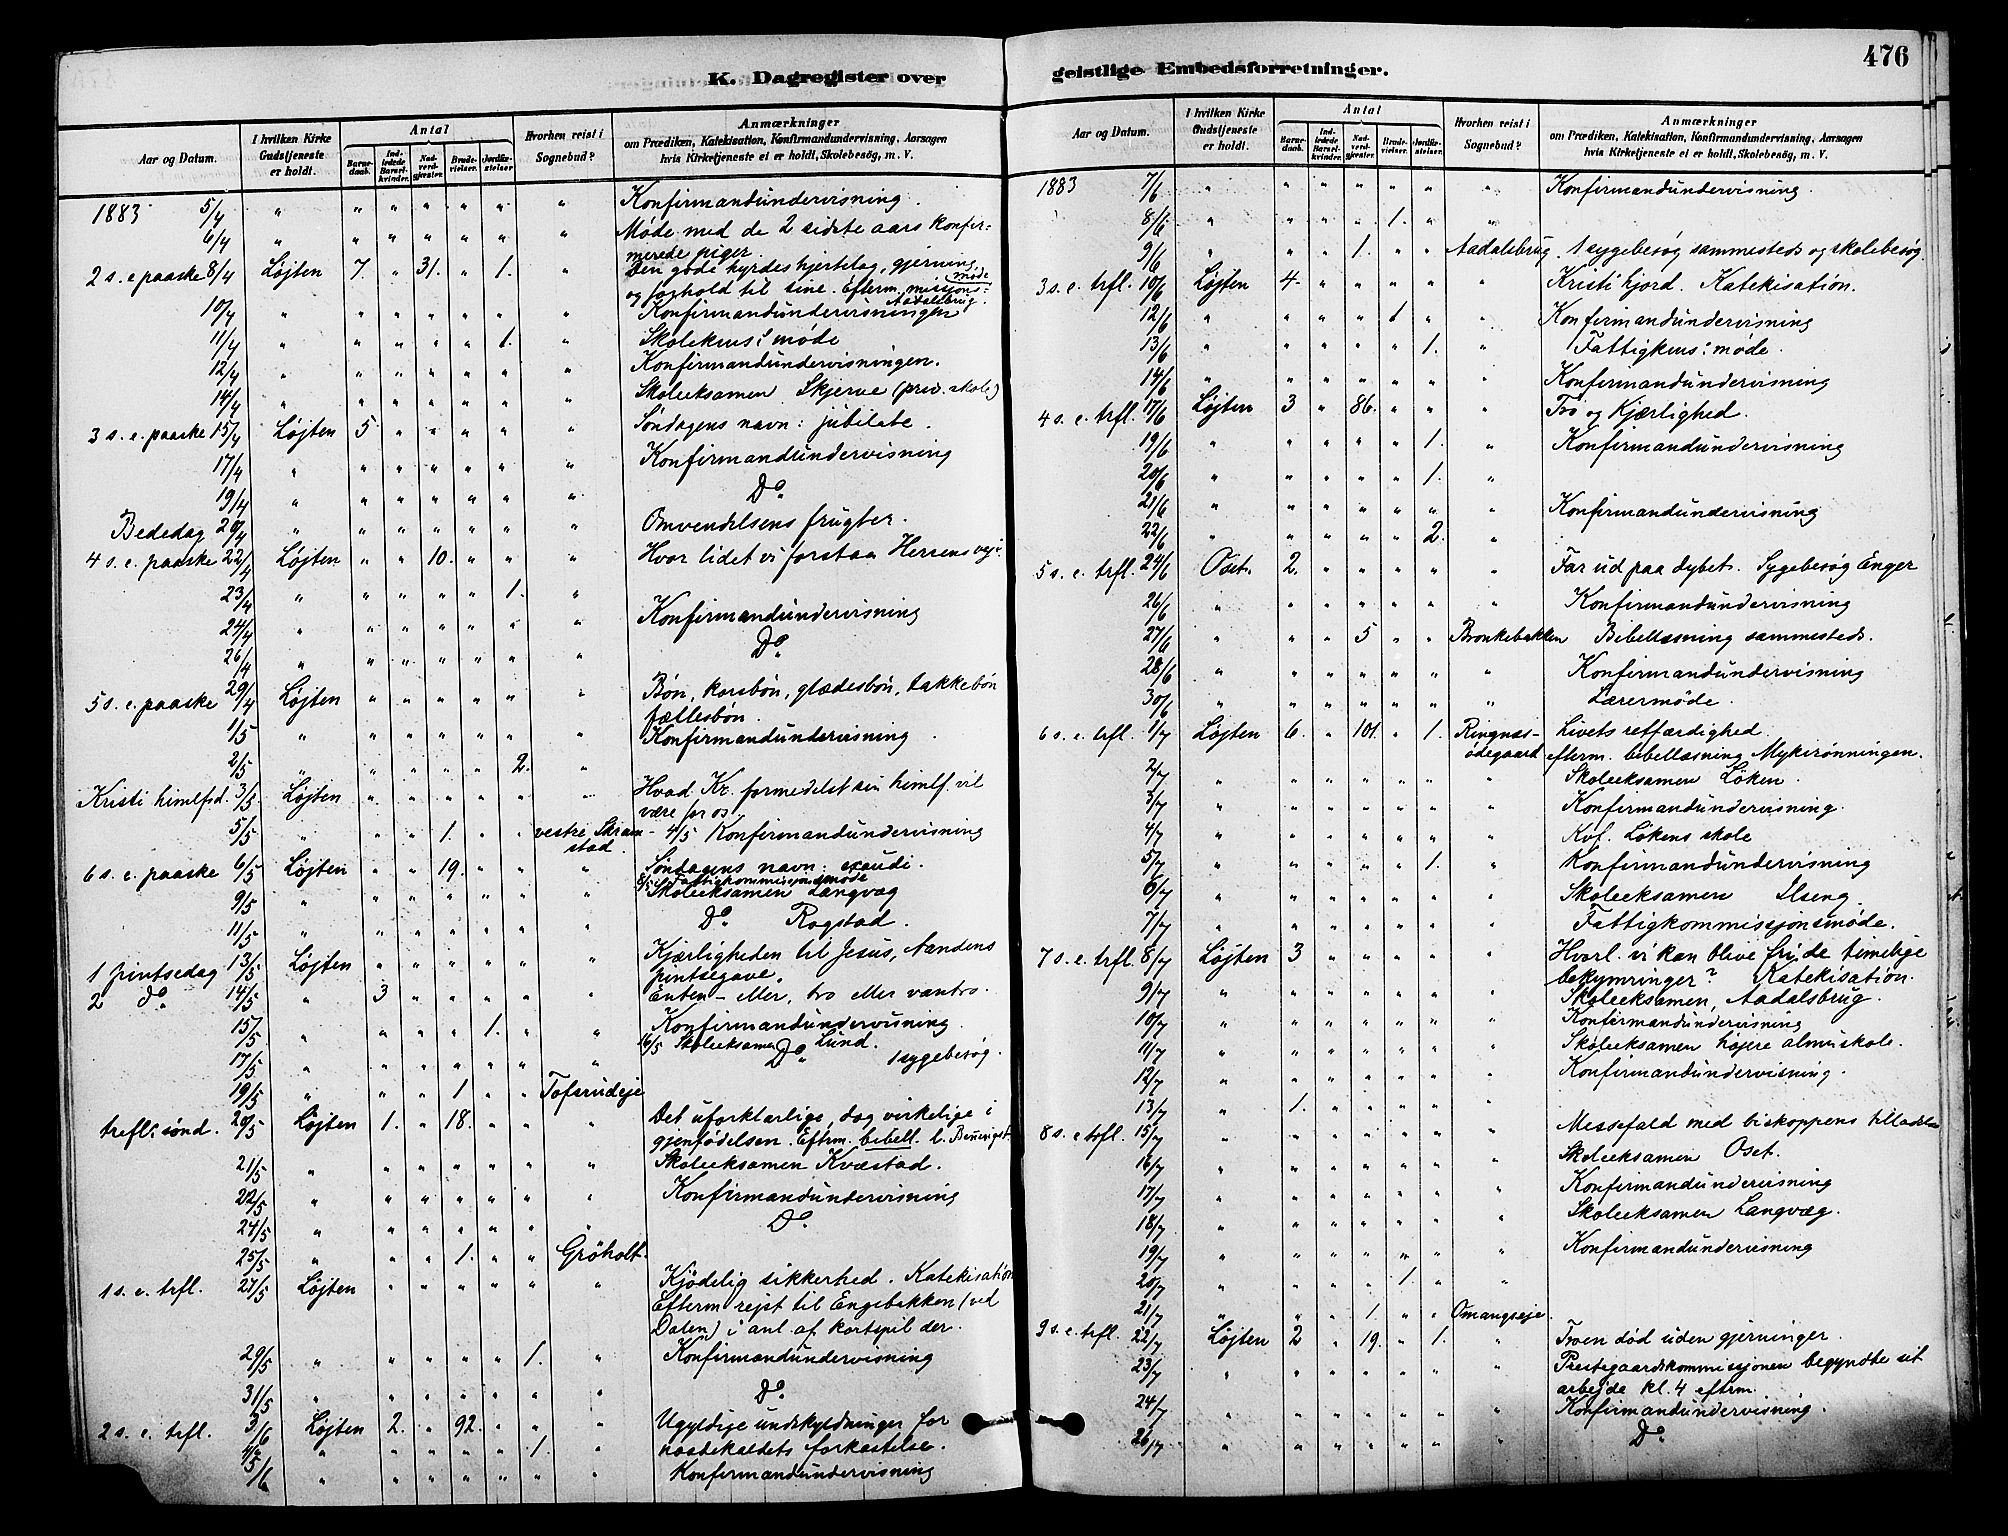 K. Dagregister over
Aar og Datum.
I hvilken Kirke Gudstjeneste er holdt.
Antal
Barnedaab.
Indledede Barselkvinder.
Nadverdgjester.
Brudevielser.
Jordfæstelser
Hvorhen reist i Sognebud?
Anmærkninger
om Prædiken, Katekisation, Konfirmandundervisning, Aarsagen
hvis Kirketjeneste ei er holdt, Skolebesög, m. V.
1883 5/4 " " " " " " " Konfirmandundervisning.
6/4 " " " " " " " Møde med de 2 sidste aars konfirmerede piger.
2 s. e. paaske 8/4 Løjten 7. " 31. " 1. " Den gode hyrdes hjertelag, gjerning
og foghold til sine. Efterm. misjons: møde Aadalsbrug.
10/4 " " " " " " " Konfirmandundervisningen
11/4 " " " " " 1. " Skolekms: møde
12/4 " " " " " " " Konfirmandundervisningen.
14/4 " " " " " " " Skoleeksamen Skjerve (priv. skole)
3 s. e. paaske 15/4 Løjten 5 " " " " " Søndagens navn: jubilate.
17/4 " " " " " " " Konfirmandundervisning
19/4 " " " " " " " Do.
Bededag 20/4 " " " " " " " Omvendelsens frugter.
4 s. e. paaske 22/4 Løjten " " 10. " " " Hvor lidet vi forstaa Herrens veje
23/4 " " " " " 1. "
24/4 " " " " " " " Konfirmandundervisning
26/4 " " " " " " " Do.
5 s. e. paaske 29/4 Løjten " " " " " " Bøn, korsbøn, glædesbøn, takkebøn
fællesbøn.
1/5 " " " " " " " Konfirmandundervisning.
2/5 " " " " " 2. "
Kristi himlfsd. 3/5 Løjten " " " " " " Hvad Kr. formedelst sin himlf. vil
være for os.
5/5 " " " 1. " " vestre Skramstad. - 4/5 Konfirmandundervisning
6 s. e. paaske 6/5 Løjten " " 19. " " " Søndagens navn: exaudi.
8/5: Fattigkommissjonsmøde
9/5 " " " " " " " Skoleeksamen Langvæg
11/5 " " " " " " " Do. Rogstad.
1 pintsedag 13/5 Løjten " " " " " " Kjærligheden til Jesus, Aandens
pintsegave.
2 do. 14/5 " 3 " " " " " Enten - eller, tro eller vantro.
15/5 " " " " " 1. " Konfirmandundervisning
16/5 Skoleeksamen Lund.
17/5 " " " " " " " Do. 1 sygebesøg.
19/5 " " " 1 " " Tofsrudeje
trefl: sønd. 20/5 Løjten 1. " 18. " " " Det uforklarlige, dog virkelige i
gjenfødelsen. Eftrm. bebell.
21/5 " " " " " " " Skoleeksamen Kvæstad.
22/5 " " " " " " " Konfirmandundervisning
24/5 " " " " " " " Do.
25/5 " " " 1. " " Gröholt.
1 s. e. trfl. 27/5 Løjten " " " " " " Kjödelig sikkerhed. Katekisation
Efterm rejst til Engebakken (ved
Dalen) i anl. af kortspil der.
29/5 " " " " " 1. " Konfirmandundervisning
31/5 " " " " " " " Do.
2 s. e. trfl. 3/6 Løjten 2. " 92. " " " Ugyldige undskyldninger for
4/6 " " " " " 1. " naadekaldets forkastelse.
5/6 " " " " " " " Konfirmandundervisning
geistlige Embedsforretninger.
476
Aar og Datum.
I hvilken Kirke Gudstjeneste er holdt.
Antal
Barnedaab.
Indledede Barselkvinder.
Nadverdgjester.
Brudevielser.
Jordfæstelser.
Hvorhen reist i Sognebud?
Anmærkninger
om Prædiken, Katekisation, Konfirmandundervisning, Aarsagen
hvis Kirketjeneste ei er holdt, Skolebesög, m. V.
1883 7/6 " " " " " " " Konfirmandundervisning.
8/6 " " " " 1. " "
9/6 " " " 1. " " Aadalsbrug. 1 sygebesøg sammesteds og skolebesøg
3 s. e. trfl. 10/6 Løjten 4. " " " " " Kristi hjord. Katekisation.
12/6 " " " " 1 " " Konfirmandundervisning
13/6 " " " " " 1. " Fattigkms: møde.
14/6 " " " " " " " Konfirmandundervisning
4 s. e. trfl. 17/6 Løjten 3 " 86. " " " Tro og Kjærlighed.
19/6 " " " " " 1. " Konfirmandundervisning
20/6 " " " " " 1. "
21/6 " " " " " " " Konfirmandundervisning
22/6 " " " " " 2. "
5 s. e. trfl. 24/6 Oset. 2. " " " " " Far ud paa dybet. Sygebesøg Enger
26/6 " " " " " " " Konfirmandundervisning
27/6 " " " 5 " " Bronkebakken Bibellæsning sammesteds.
28/6 " " " " " " " Konfirmandundervisning
30/6 " " " " " " " Lærermøde.
6 s. e. trfl. 1/7 Løjten 6. " 101. " 1. Ringnæsødegaard Livets retfærdighed.
efterm. bibellæsning Mykirönningen.
2/7 " " " " " " " Skoleeksamen Løken.
3/7 " " " " " " " Konfirmandundervisning.
4/7 " " " " " " " Kvf. Løkens skole
5/7 " " " " " 1. " Konfirmandundervisning
6/7 " " " " " " " Skoleeksamen Ilseng.
7/7 " " " " " " " Fattigkommissjonsmøde.
7 s. e. trfl. 8/7 Løjten 3 " " " " " Hvorl. vi kan blive fri de timelige
bekymringer? Katekisation.
9/7 " " " " " " " Skoleeksamen, Aadalsbrug.
10/7 " " " " " " " Konfirmandundervisning
11/7 " " " " " " " Skoleeksamen højere almuskole.
12/7 " " " " " " " Konfirmandundervisning.
13/7 " 1. " " " " "
8 s. e. trfl. 15/7 " " " " " " " Messefald med biskoppens tilladelse
16/7 " " " " " " " Skoleeksamen Oset.
17/7 " " " " " " " Konfirmandundervisning
18/7 " " " " " " " Skoleeksamen Langvæg.
19/7 " " " " " " " Konfirmandundervisning
20/7 " " " " 1. " "
21/7 " " " 1. " " Omangseje.
9 s. e. trfl. 22/7 Løjten 2 " 19. " 1. " Troen død uden gjerninger.
23/7 " " " " " " " Prestegaardskommissjonen begyndte sit
arbejde kl. 4 eftrm.
24/7 " " " " " " " Konfirmandundervisning.
26/7 " " " " " " " Do.